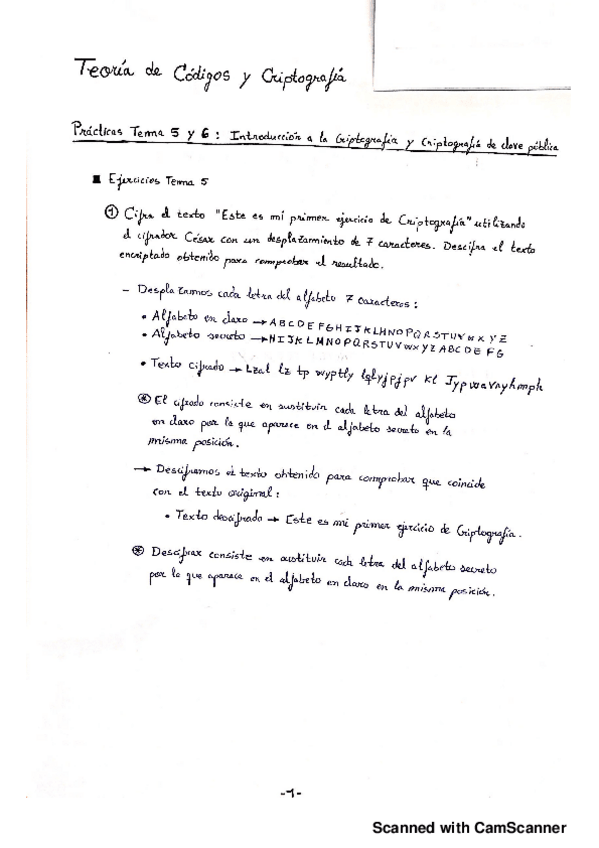 Teoría de Códigos y Criptografía
Prácticas Tema 5 y 6: Introducción a la Criptografía y Criptografía de clave pública
■ Ejercicios Tema 5
① Cifra el texto "Este es mi primer ejercicio de Criptografía" utilizando
el cifrador César con un desplazamiento de 7 caracteres. Descifra el texto
encriptado obtenido para comprobar el resultado.
- Desplazamos cada letra del alfabeto 7 caracteres:
• Alfabeto en claro → A B C D E F G H I J K L M N O P Q R S T U V W X Y Z
• Alfabeto secreto → H I J K L M N O P Q R S T U V W X Y Z A B C D E F G
• Texto cifrado → Lzal lz tp wyptly lqlyjpjpv kl Jypwavnyhmph
⊛ El cifrado consiste en sustituir cada letra del alfabeto
en claro por la que aparece en el alfabeto secreto en la
misma posición.
→ Desciframos el texto obtenido para comprobar que coincide
con el texto original:
• Texto descifrado → Este es mi primer ejercicio de Criptografía.
⊛ Descifrar consiste en sustituir cada letra del alfabeto secreto
por la que aparece en el alfabeto en claro en la misma posición.
-1-
Scanned with CamScanner